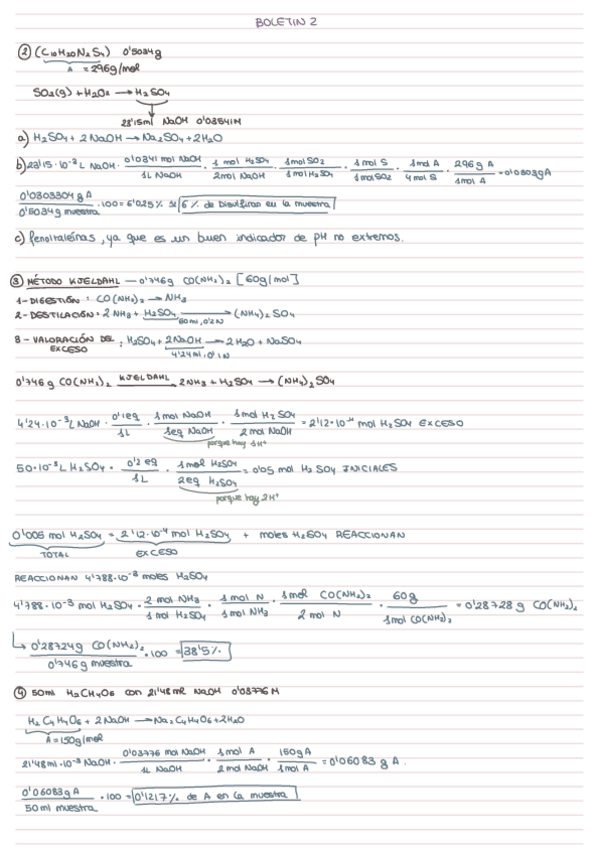 BOLETIN 2
② (C10H20N2S4) 0'5034g
A = 296g/mol
SO2(g) + H2O2 → H2SO4
23'15ml NaOH 0'0341M
a) H2SO4 + 2NaOH → Na2SO4 + 2H2O
b) 23'15·10⁻³ L NaOH · 0'0341 mol NaOH / 1L NaOH · 1 mol H2SO4 / 2mol NaOH · 1mol SO2 / 1mol H2SO4 · 1mol S / 1mol SO2 · 1mol A / 4mol S · 296 g A / 1mol A = 0'0303gA
0'0303304 g A / 0'5034g muestra · 100 = 6'025% ≈ 6% de Disulfiran en la muestra
c) fenoltaleínas, ya que es un buen indicador de pH no extremos.
③ MÉTODO KJELDAHL — 0'746g CO(NH2)2 [60g/mol]
1-DIGESTIÓN: CO(NH2)2 → NH3
2-DESTILACIÓN: 2NH3 + H2SO4 → (NH4)2SO4
50ml, 0'2N
3- VALORACIÓN DEL EXCESO: H2SO4 + 2NaOH → 2H2O + NaSO4
4'24ml, 0'1N
0'746g CO(NH2)2 KJELDAHL → 2NH3 + H2SO4 → (NH4)2SO4
4'24·10⁻³L NaOH · 0'1eq / 1L · 1mol NaOH / 1eq NaOH · 1mol H2SO4 / 2mol NaOH = 2'12·10⁻⁴ mol H2SO4 EXCESO
porque hay 1H⁺
50·10⁻³L H2SO4 · 0'2eq / 1L · 1mol H2SO4 / 2eq H2SO4 = 0'05 mol H2SO4 INICIALES
porque hay 2H⁺
0'005 mol H2SO4 = 2'12·10⁻⁴ mol H2SO4 + moles H2SO4 REACCIONAN
TOTAL EXCESO
REACCIONAN 4'788·10⁻³ moles H2SO4
4'788·10⁻³ mol H2SO4 · 2 mol NH3 / 1 mol H2SO4 · 1 mol N / 1mol NH3 · 1mol CO(NH2)2 / 2 mol N · 60g / 1mol CO(NH2)2 = 0'28728 g CO(NH2)2
↳ 0'28724g CO(NH2)2 / 0'746g muestra · 100 = 38'5%
④ 50ml H2C4H4O6 con 21'48ml NaOH 0'03776M
H2C4H4O6 + 2NaOH → Na2C4H4O6 + 2H2O
A=150g/mol
21'48ml·10⁻³ NaOH · 0'03776 mol NaOH / 1L NaOH · 1mol A / 2mol NaOH · 150gA / 1mol A = 0'06083 g A.
0'06083g A / 50ml muestra · 100 = 0'1217% de A en la muestra